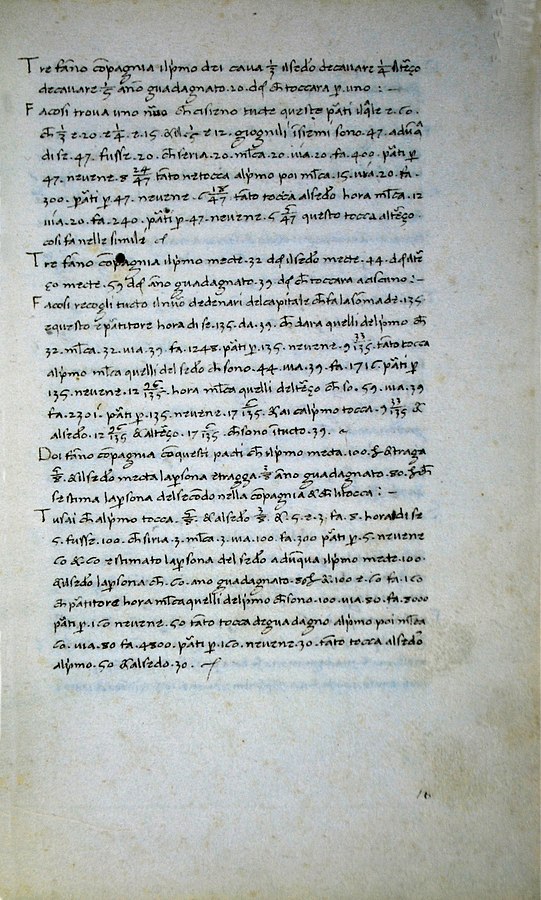 Tre fāno cōpagnia ilp̄mo dei cavar 1/3 ilsedo decavare 1/4 iltēço
decavare 1/5 āno guadagnato .20. dēſ ch̄ toccara p̄ uno :–
Facosi trova uno nūo ch̄ cisieno tucte queste p̄ati ilq̄le e .60.
ch̄ 1/3 e .20. e 1/4 e .15. & 1/5 e 12. giognili īsiemi sono .47. adūq̄
di se .47. fusse .20. ch̄ seria .20. ml̄ca .20. via .20. fa .400. p̄ati p̄
47. nevene .8 24/47 tāto netocca alp̄mo poi ml̄ca .15. via .20. fa.
300. p̄ati p̄ .47. nevene .6 18/47 tāto tocca alsedo hora ml̄ca .12
via .20. fa .240. p̄ati p̄ .47. nevene .5 5/47 questo tocca altēço.
cosi fa nelle simile
Tre fāno cōpagnia ilp̄mo mecte .32 dēſ ilsedo mecte .44. dēſ iltē
ço mecte .59 dēſ āno guadagnato .39. dēſ ch̄ toccara aciscuno :–
Facosi recogli tucto il nūo dedenari delcapitale ch̄ fa lasoma de .135.
equesto e p̄atitore hora di se .135. da .39. ch̄ dara quelli delp̄mo ch̄
32. ml̄ca .32. via .39. fa .1248. p̄ati p̄ .135. nevene .9 33/135. tāto tocca
alp̄mo ml̄ca quelli del sedo ch̄ sono .44. via .39. fa .1716. p̄ati p̄
135. nevene .12 96/135. hora ml̄ca quelli deltēço ch̄ so .59. via .39
fa .2301. p̄ati p̄ .135. nevene .17 6/135. & ai calp̄mo tocca .9 33/135 &
alsedo .12 96/135 & altēço .17 6/135. ch̄ sono ītucto .39.
Doi fāno cōpagnia cōquesti pacti ch̄ ilp̄mo mecta .100. & traga
5/8. & ilsedo mecta lap̄sona etragga 3/8 āno guadagnato .80. ch̄
se stima lap̄sona delsecōdo nella cōpagnia & ch̄ litocca :–
Tu sai ch̄ alp̄mo tocca 5/8 & alsedo 3/8 & .5. e .3. fa .8. hora di se
5. fusse .100. ch̄ siria .3. ml̄ca .3. via .100. fa .300 p̄ati p̄ .5. nevene
60 & 60 e stimato lap̄sona del sedo adūqua ilp̄mo mecte .100.
& ilsedo lap̄sona ch̄ .60. āno guadagnato .80 & .100 e .60 fa .160
ch̄ p̄atitore hora ml̄ca quelli delp̄mo ch̄ sono .100. via .80. fa .8000
p̄ati p̄ .160 nevene .50 tāto tocca deguadagno alp̄mo poi ml̄ca
60. via .80 fa .4800. p̄ati p̄ .160. nevene .30. tāto tocca alsedo
alp̄mo .50 & alsedo .30.